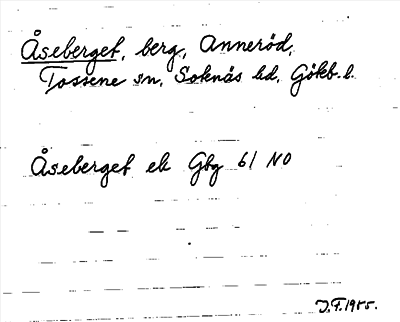 Åseberget, berg, Anneröd,
Tossene sn, Sotenäs hd, Gökb. l.
Åseberget ek Gbg 61 NO
J.F. 1955.